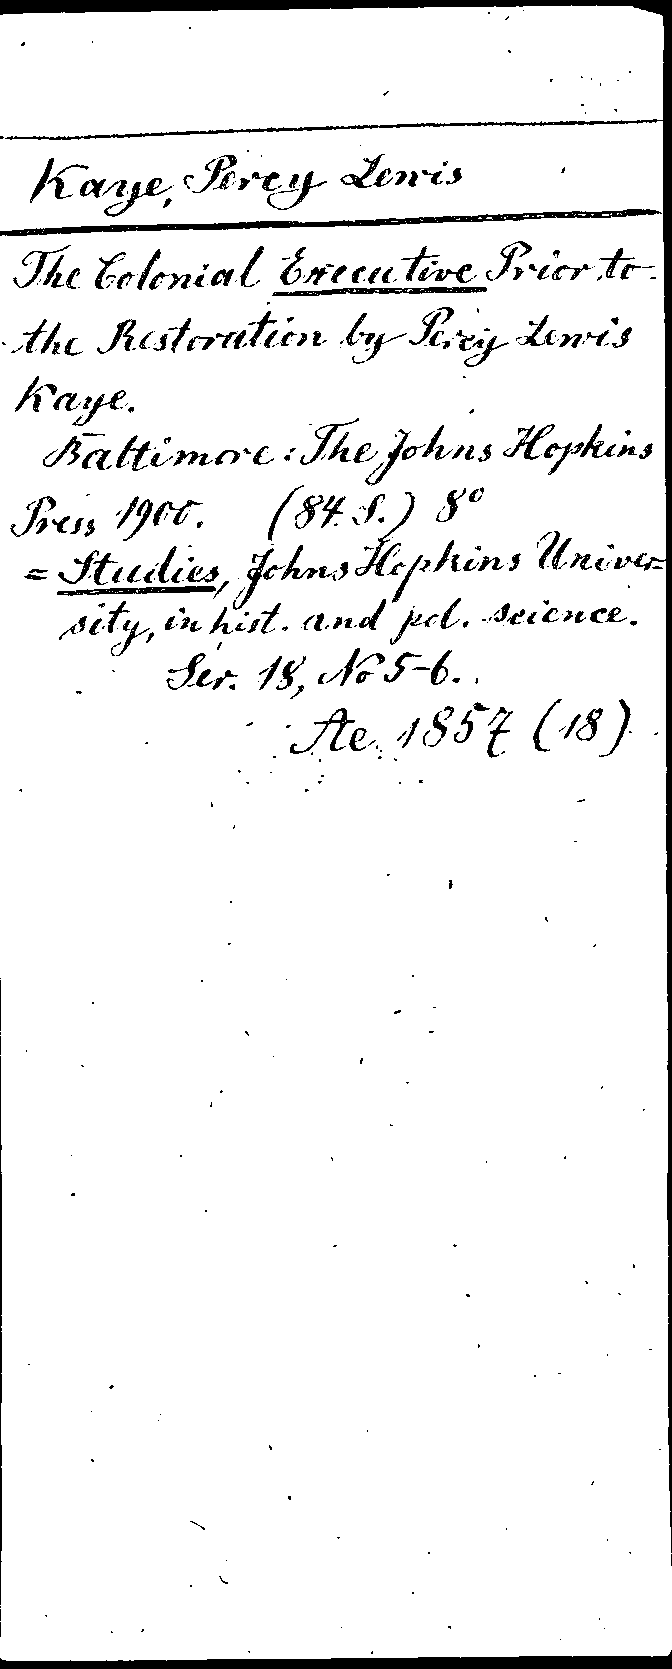 Kaye, Percy Lewis
The Colonial Executive Prior to
the Restoration by Percy Lewis
Kaye.
Baltimore: The Johns Hopkins
Press 1900. (84 S.) 8°
= Studies, Johns Hopkins Univer=
sity, in hist. and pol. science.
Ser. 18, No 5-6.
Ae 1857 (18)